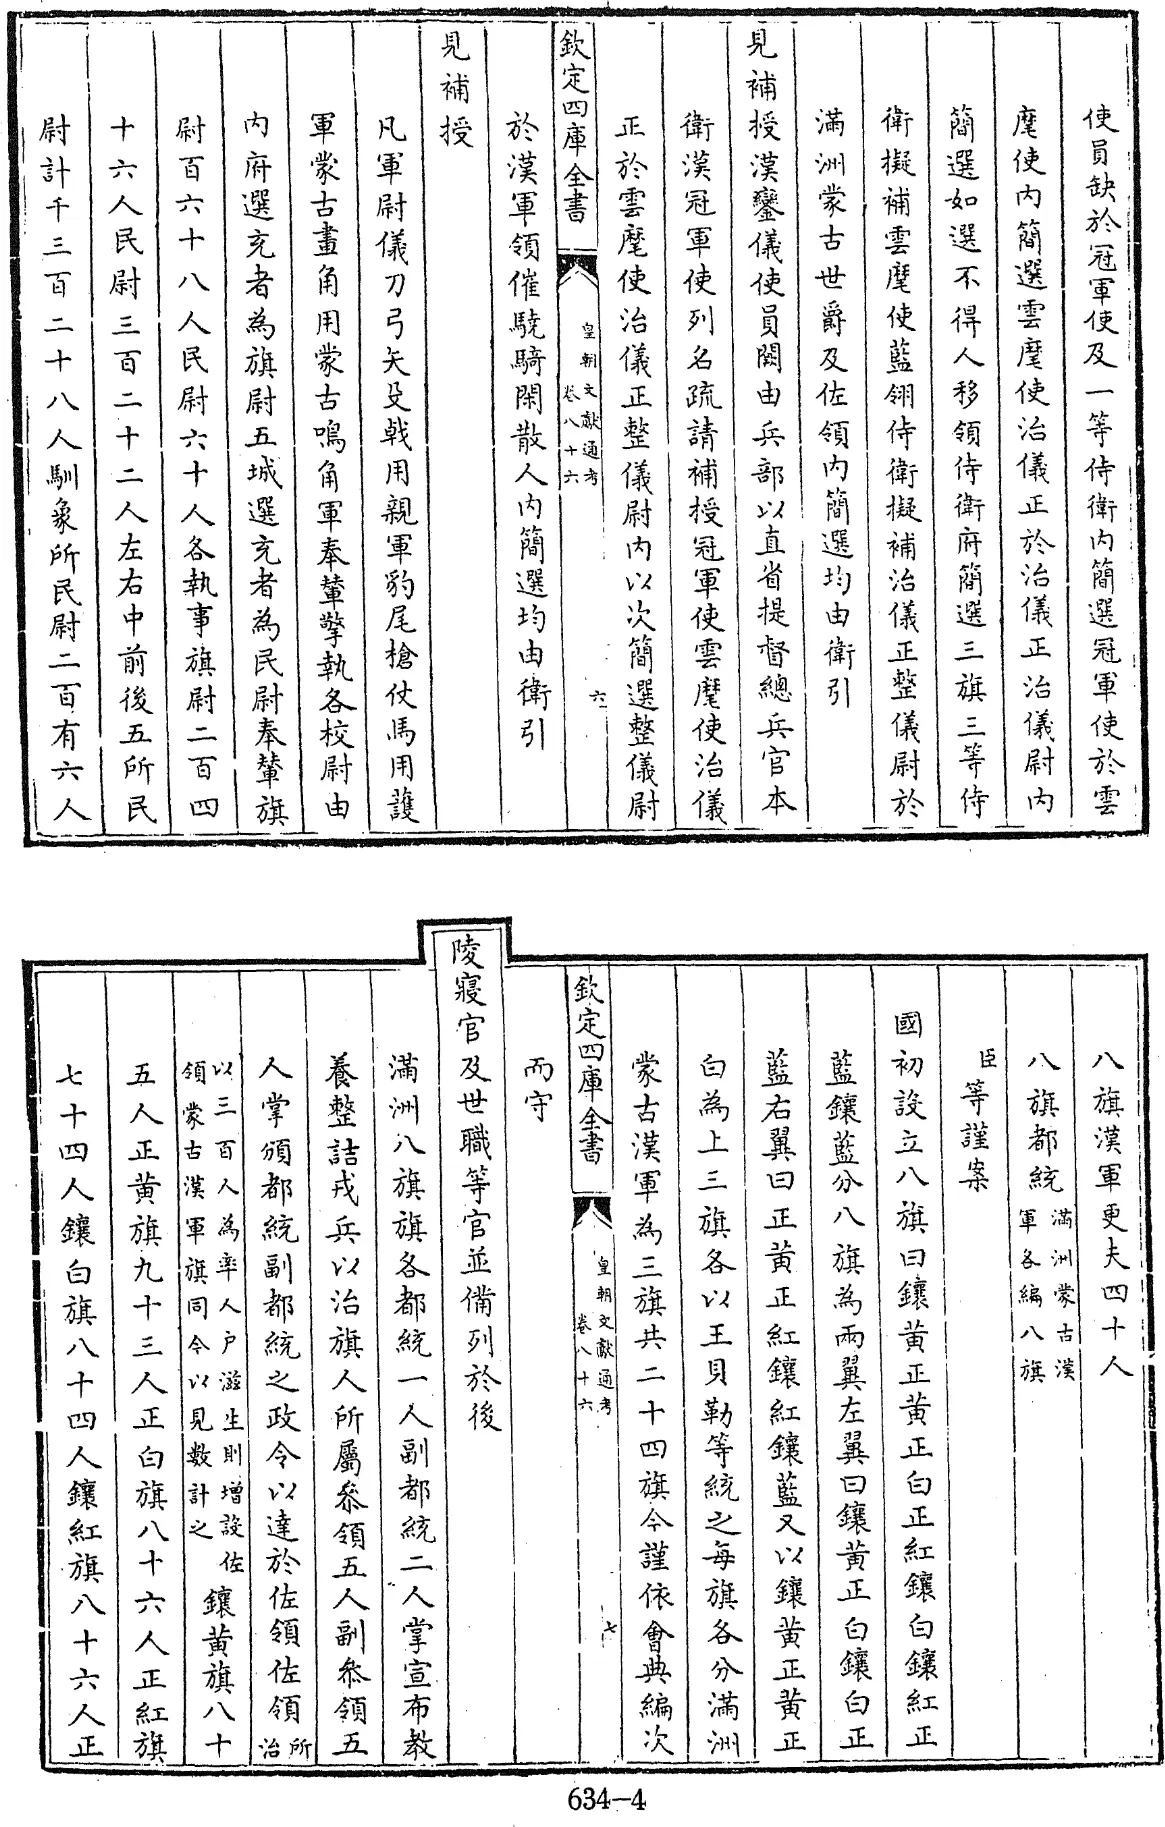 使員缺於冠軍使及一等侍衛内簡選冠軍使於雲
麾使内簡選雲麾使治儀正於治儀正治儀尉内
簡選如選不得人移領侍衛府簡選三旗三等侍
衛擬補雲麾使藍翎侍衛擬補治儀正整儀尉於
滿洲蒙古世爵及佐領内簡選均由衛引
見補授漢鑾儀使員闕由兵部以直省提督總兵官本
衛漢冠軍使列名疏請補授冠軍使雲麾使治儀
正於雲麾使治儀正整儀尉内以次簡選整儀尉
欽定四庫全書
皇朝文獻通考
卷八十六
六
於漢軍領催驍騎閑散人内簡選均由衛引
見補授
凡軍尉儀刀弓矢殳戟用親軍豹尾槍仗馬用護
軍蒙古畫角用蒙古鳴角軍奉輦擎執各校尉由
内府選充者為旗尉五城選充者為民尉奉輦旗
尉百六十八人民尉六十人各執事旗尉二百四
十六人民尉三百二十二人左右中前後五所民
尉計千三百二十八人馴象所民尉二百有六人
八旗漢軍更夫四十人
八旗都統滿洲蒙古漢軍各編八旗
臣等謹案
國初設立八旗曰鑲黄正黄正白正紅鑲白鑲紅正
藍鑲藍分八旗為兩翼左翼曰鑲黄正白鑲白正
藍右翼曰正黄正紅鑲紅鑲藍又以鑲黄正黄正
白為上三旗各以王貝勒等統之每旗各分滿洲
蒙古漢軍為三旗共二十四旗今謹依會典編次
欽定四庫全書
皇朝文獻通考
卷八十六
七
而守
陵寢官及世職等官並備列於後
滿洲八旗旗各都統一人副都統二人掌宣布教
養整詰戎兵以治旗人所屬叅領五人副叅領五
人掌頒都統副都統之政令以達於佐領佐領所治
以三百人為率人户滋生則增設佐領蒙古漢軍旗同今以見數計之鑲黄旗八十
五人正黄旗九十三人正白旗八十六人正紅旗
七十四人鑲白旗八十四人鑲紅旗八十六人正
634-4